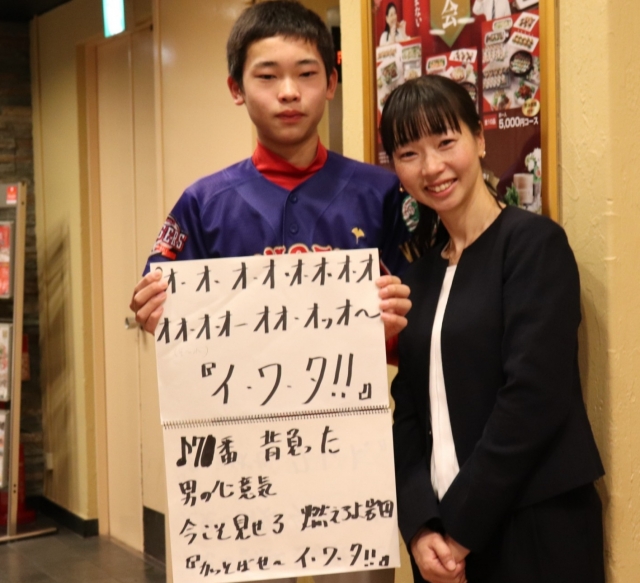 会
5,000円コース
『オ・オ・オ・オ・オ・オ・オ・オ
オオ・オ・オー オオ・オッオ〜
『イ・ワ・タ!!』
♪7番 背負った
男の心意気
今こそ見せろ 燃えろよ岩田
『かっとばせ〜 イ・ワ・タ!!』